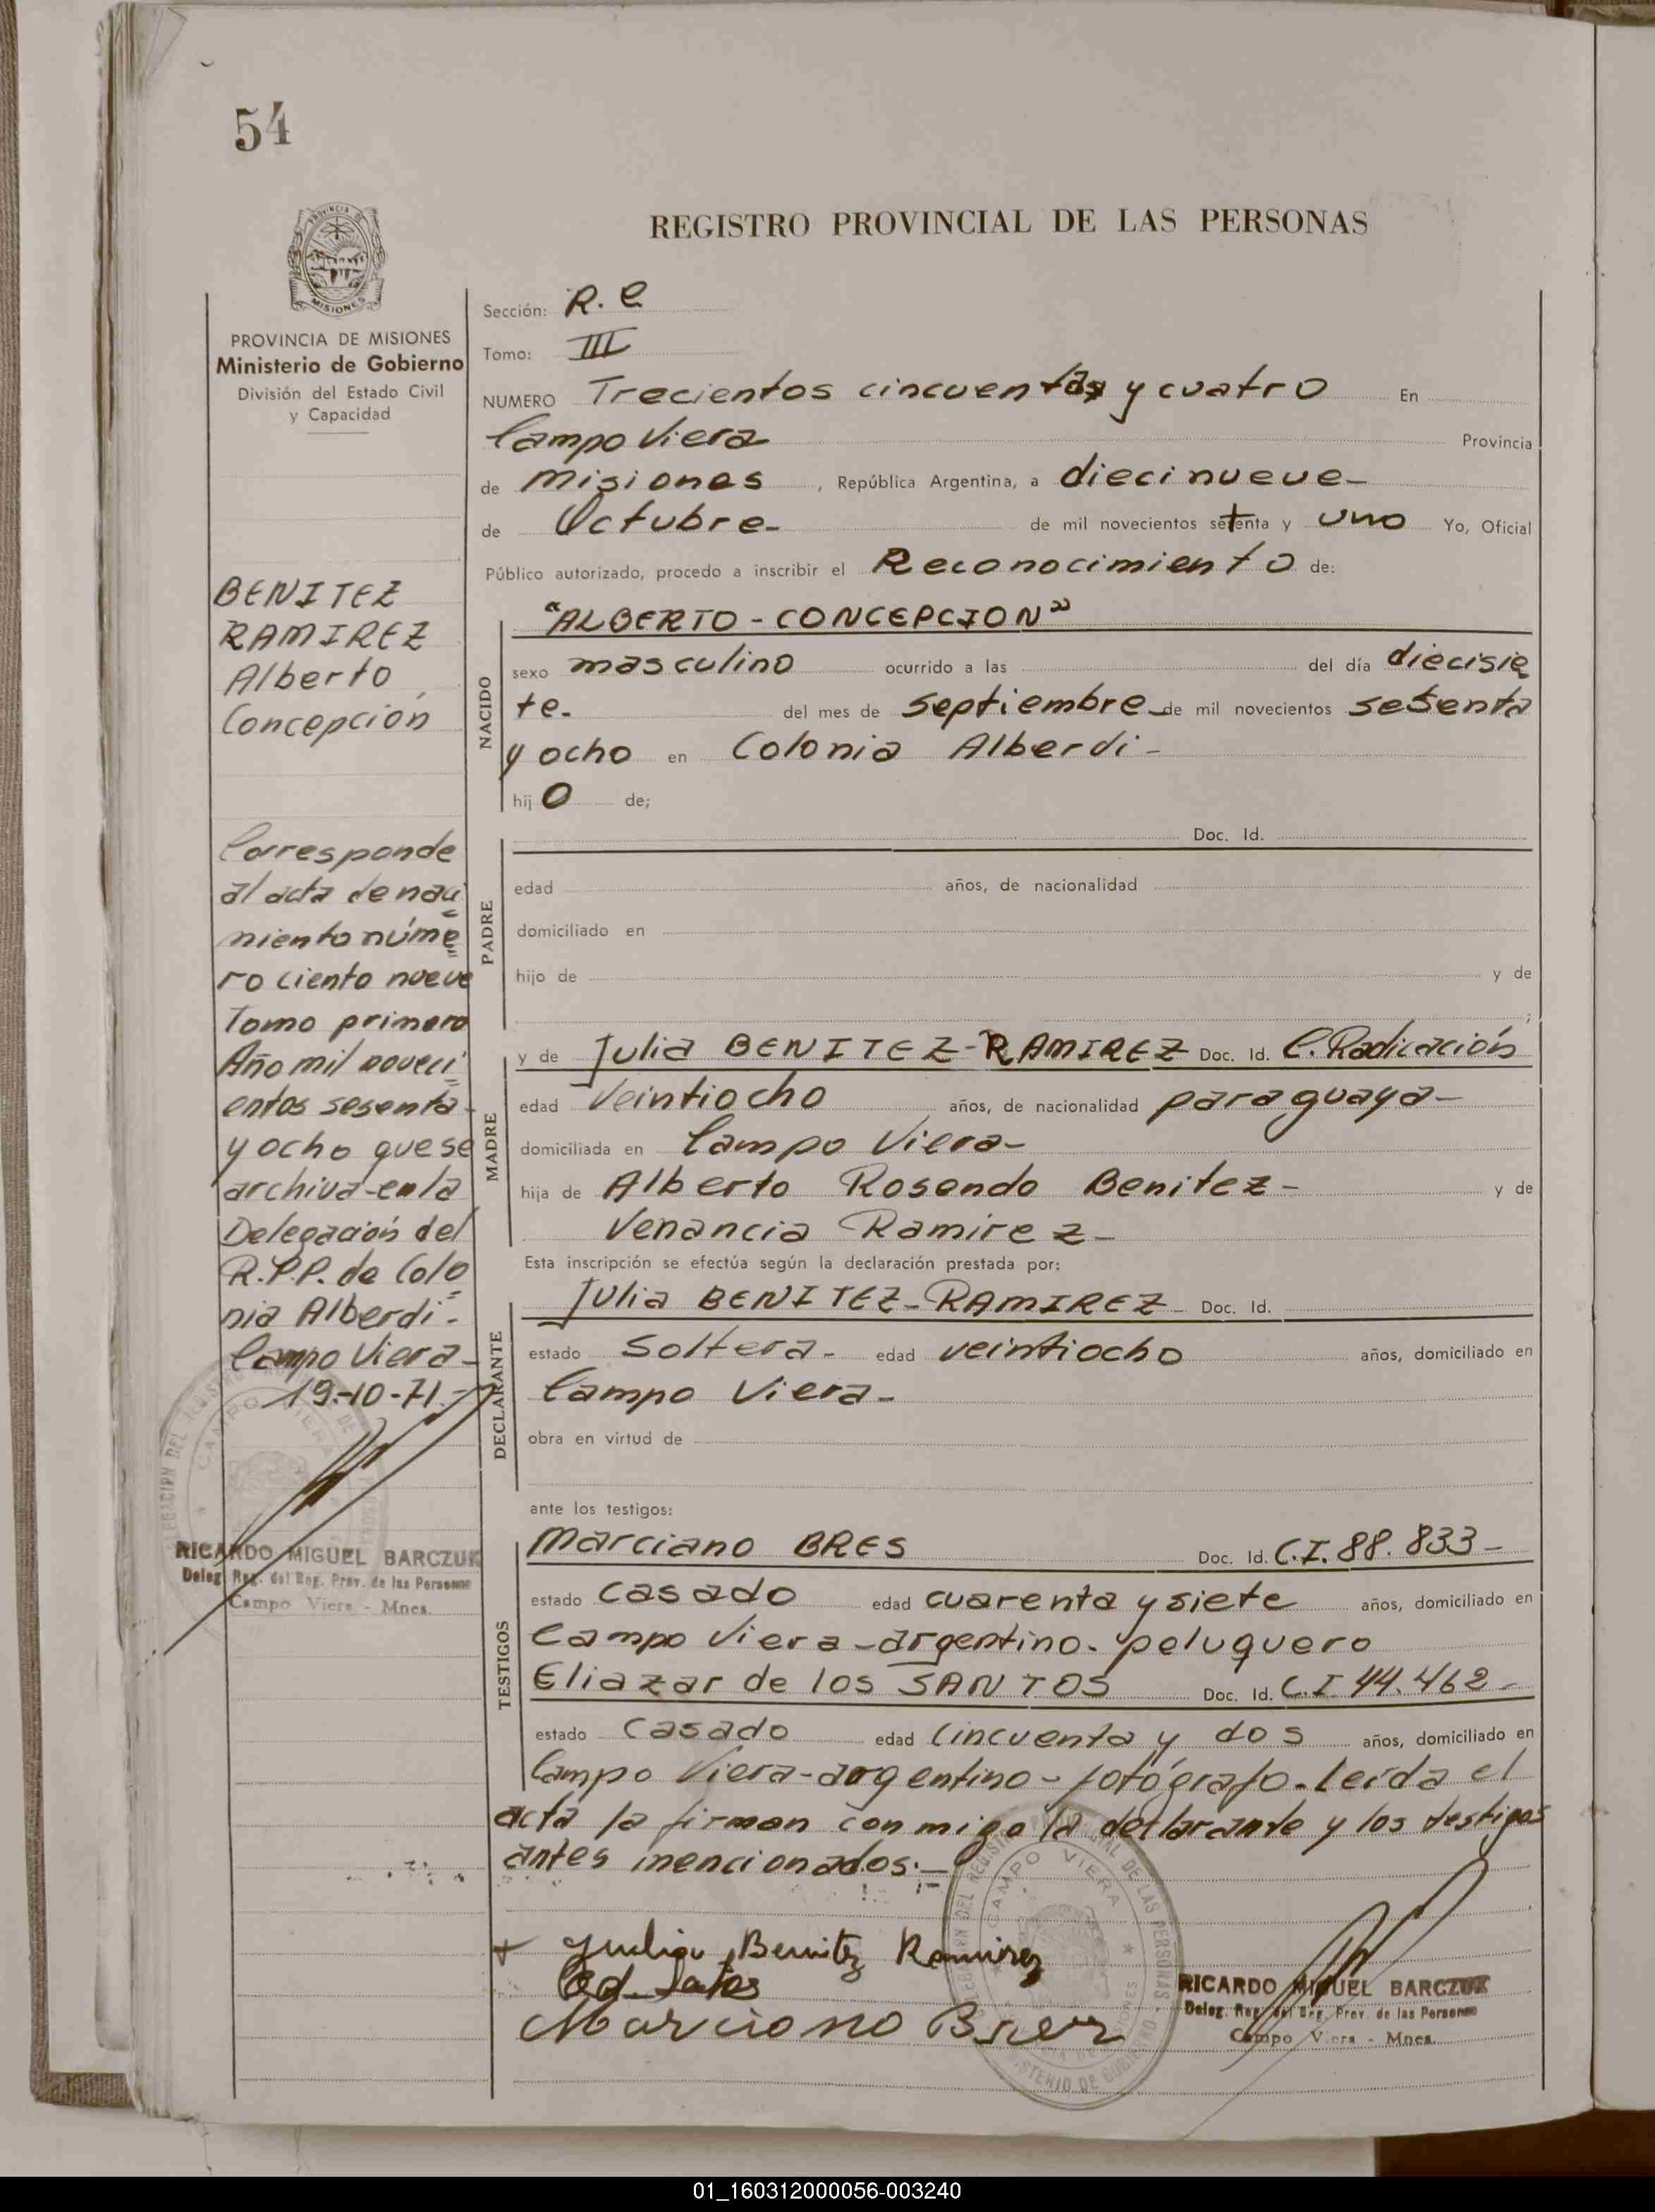 54
REGISTRO PROVINCIAL DE LAS PERSONAS
PROVINCIA DE MISIONES
Ministerio de Gobierno
División del Estado Civil
y Capacidad
BENITEZ
RAMIREZ
Alberto
Concepción
Corresponde
al acta de naci
miento núme
ro ciento nueve
Tomo primero
Año mil noveci
entos sesenta
y ocho que se
archiva en la
Delegación del
R.P.P. de Colo
nia Alberdi.
Campo Viera-
19-10-71.-
RICARDO MIGUEL BARCZUK
Deleg. Reg. del Reg. Prov. de las Personas
Campo Viera - Mnes.
Sección: R. C
Tomo: III
NUMERO Trecientos cincuenta y cuatro En
Campo Viera Provincia
de Misiones, República Argentina, a diecinueve-
de Octubre- de mil novecientos setenta y uno Yo, Oficial
Público autorizado, procedo a inscribir el Reconocimiento de:
NACIDO
"ALBERTO - CONCEPCION"
sexo masculino ocurrido a las del día diecisie
te- del mes de septiembre- de mil novecientos sesenta
y ocho en Colonia Alberdi-
hijo de;
PADRE
Doc. Id.
edad años, de nacionalidad
domiciliado en
hijo de y de
;
MADRE
y de Julia BENITEZ-RAMIREZ Doc. Id. C. Radicación
edad Veintiocho años, de nacionalidad paraguaya-
domiciliada en Campo Viera-
hija de Alberto Rosendo Benitez- y de
Venancia Ramirez-
Esta inscripción se efectúa según la declaración prestada por:
DECLARANTE
Julia BENITEZ-RAMIREZ- Doc. Id.
estado Soltera- edad veintiocho años, domiciliado en
Campo Viera-
obra en virtud de
ante los testigos:
TESTIGOS
Marciano BRES Doc. Id. C.I. 88.833-
estado Casado edad cuarenta y siete años, domiciliado en
Campo Viera-argentino-peluquero
Eliazar de los SANTOS Doc. Id. C.I 44.462-
estado Casado edad Cincuenta y dos años, domiciliado en
Campo Viera-argentino-fotógrafo. Leída el
acta la firman conmigo la declarante y los testigos
antes mencionados.-
Julia Benitez Ramirez
Marciano Bres
RICARDO MIGUEL BARCZUK
Deleg. Reg. del Reg. Prov. de las Personas
Campo Viera - Mnes.
01_160312000056-003240